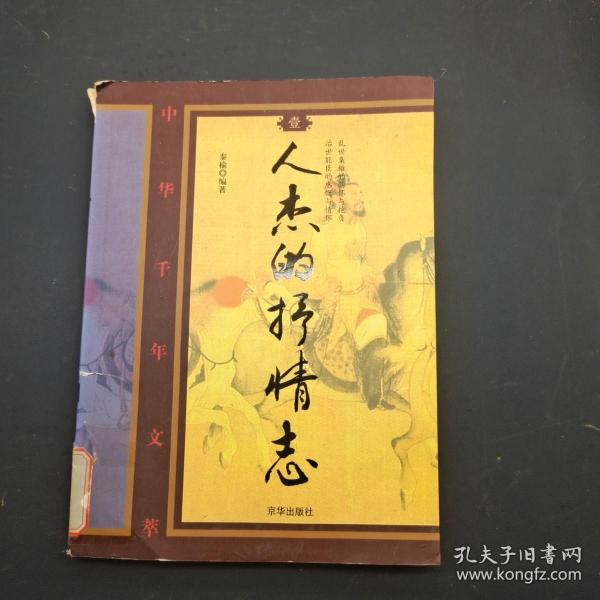 中华千年文萃
壹
乱世枭雄的胸怀与抱负
治世能臣的感慨与情怀
人杰的抒情志
秦榆◎编著
京华出版社
孔夫子旧书网
www.kongfz.com